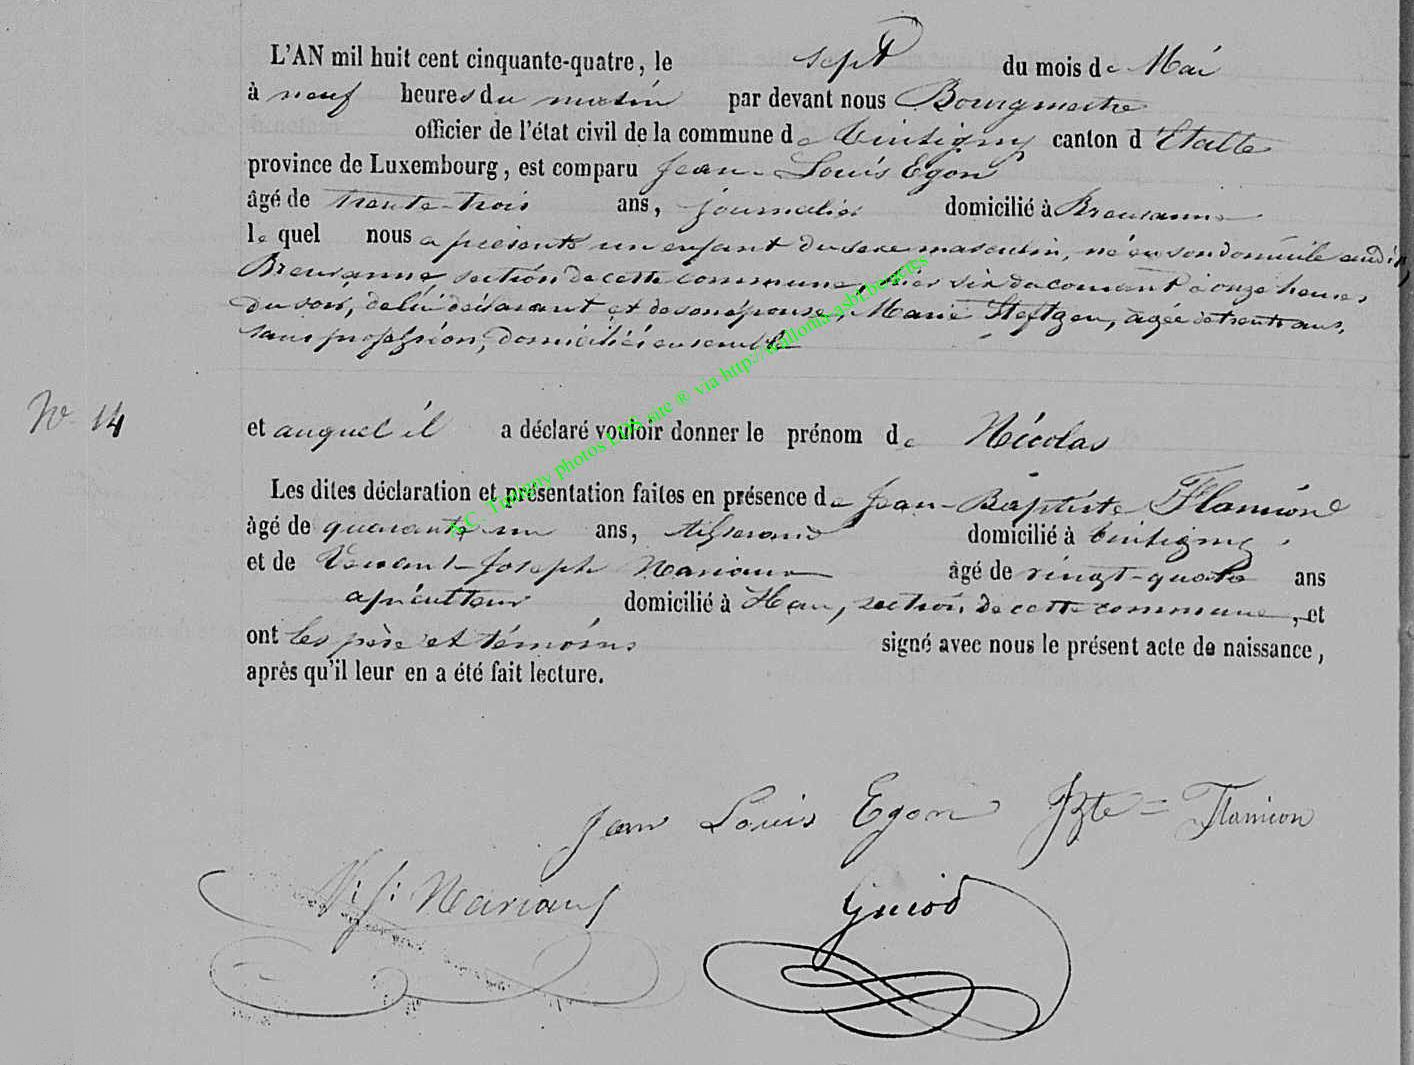 L'AN mil huit cent cinquante-quatre, le sept du mois de Mai
à neuf heures du matin par devant nous Bourgmestre
officier de l'état civil de la commune de Tintigny canton d'Etalle
province de Luxembourg, est comparu Jean-Louis Egon
âgé de trente-trois ans, journalier domicilié à Breuvanne
le quel nous a présenté un enfant du sexe masculin, né en son domicile audit
Breuvanne, section de cette commune, hier six du courant à onze heures
du soir, de lui déclarant et de son épouse, Marie Steftgen, agée de trente ans,
sans profession, domiciliés ensemble
N. 14
et auquel il a déclaré vouloir donner le prénom de Nicolas
Les dites déclaration et présentation faites en présence de Jean-Baptiste Flamion
âgé de quarante un ans, tisserand domicilié à Tintigny,
et de Joseph Mariaux âgé de vingt-quatre ans
agriculteur domicilié à Han, section de cette commune, et
ont les père et témoins signé avec nous le présent acte de naissance,
après qu'il leur en a été fait lecture.
Jean Louis Egon JBte = Flamion
V: J: Mariaux
Guiod
A.C. Tintigny photos LDS site ® via http://wallonia-asbl.be/actes